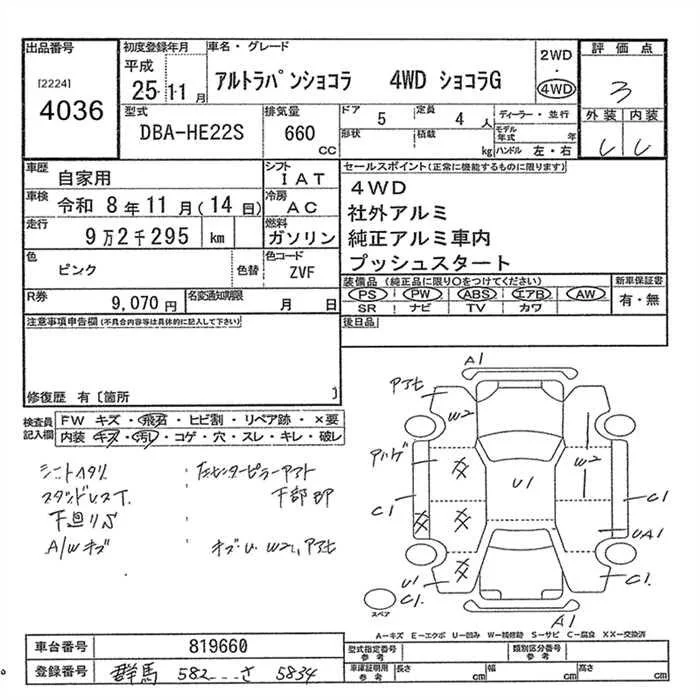 出品番号
[2224]
4036
初度登録年月
平成
25 11月
車名・グレード
アルトラパンショコラ 4WD ショコラG
2WD
・
4WD
評価点
3
外装 内装
型式
DBA-HE22S
排気量
660 cc
ドア 5
定員 4 人
形状
積載 kg
ディーラー・並行
モデル年式 年
ハンドル 左・右
車歴
自家用
シフト
IAT
車検
令和 8年11月(14日)
冷房
AC
走行
9万2千295 km
燃料
ガソリン
色
ピンク
色替
色コード
ZVF
R券
9,070円
名変通知期限
月 日
セールスポイント(正常に機能するものに限ります)
4WD
社外アルミ
純正アルミ車内
プッシュスタート
装備品(純正品に限り○をつけてください)
PS PW ABS エアB AW
SR ナビ TV カワ
新車保証書
有・無
後日品
注意事項申告欄(不具合内容等は具体的に記入して下さい)
修復歴 有〔箇所 〕
検査員記入欄
FW キズ・飛石・ヒビ割・リペア跡・×要
内装 キズ・汚レ・コゲ・穴・スレ・キレ・破レ
下廻りS
A/Wキズ
下部凹
A1
W2
W2
U1
C1
C1
UA1
U1
C1.
C1.
A1
スペア
A-キズ E-エクボ U-凹み W-補修跡 S-サビ C-腐食 XX-交換済
車台番号
819660
登録番号
群馬 582 さ 5834
型式指定番号
参考
類別区分番号
参考
車庫証明用
参考
長さ cm
幅 cm
高さ cm